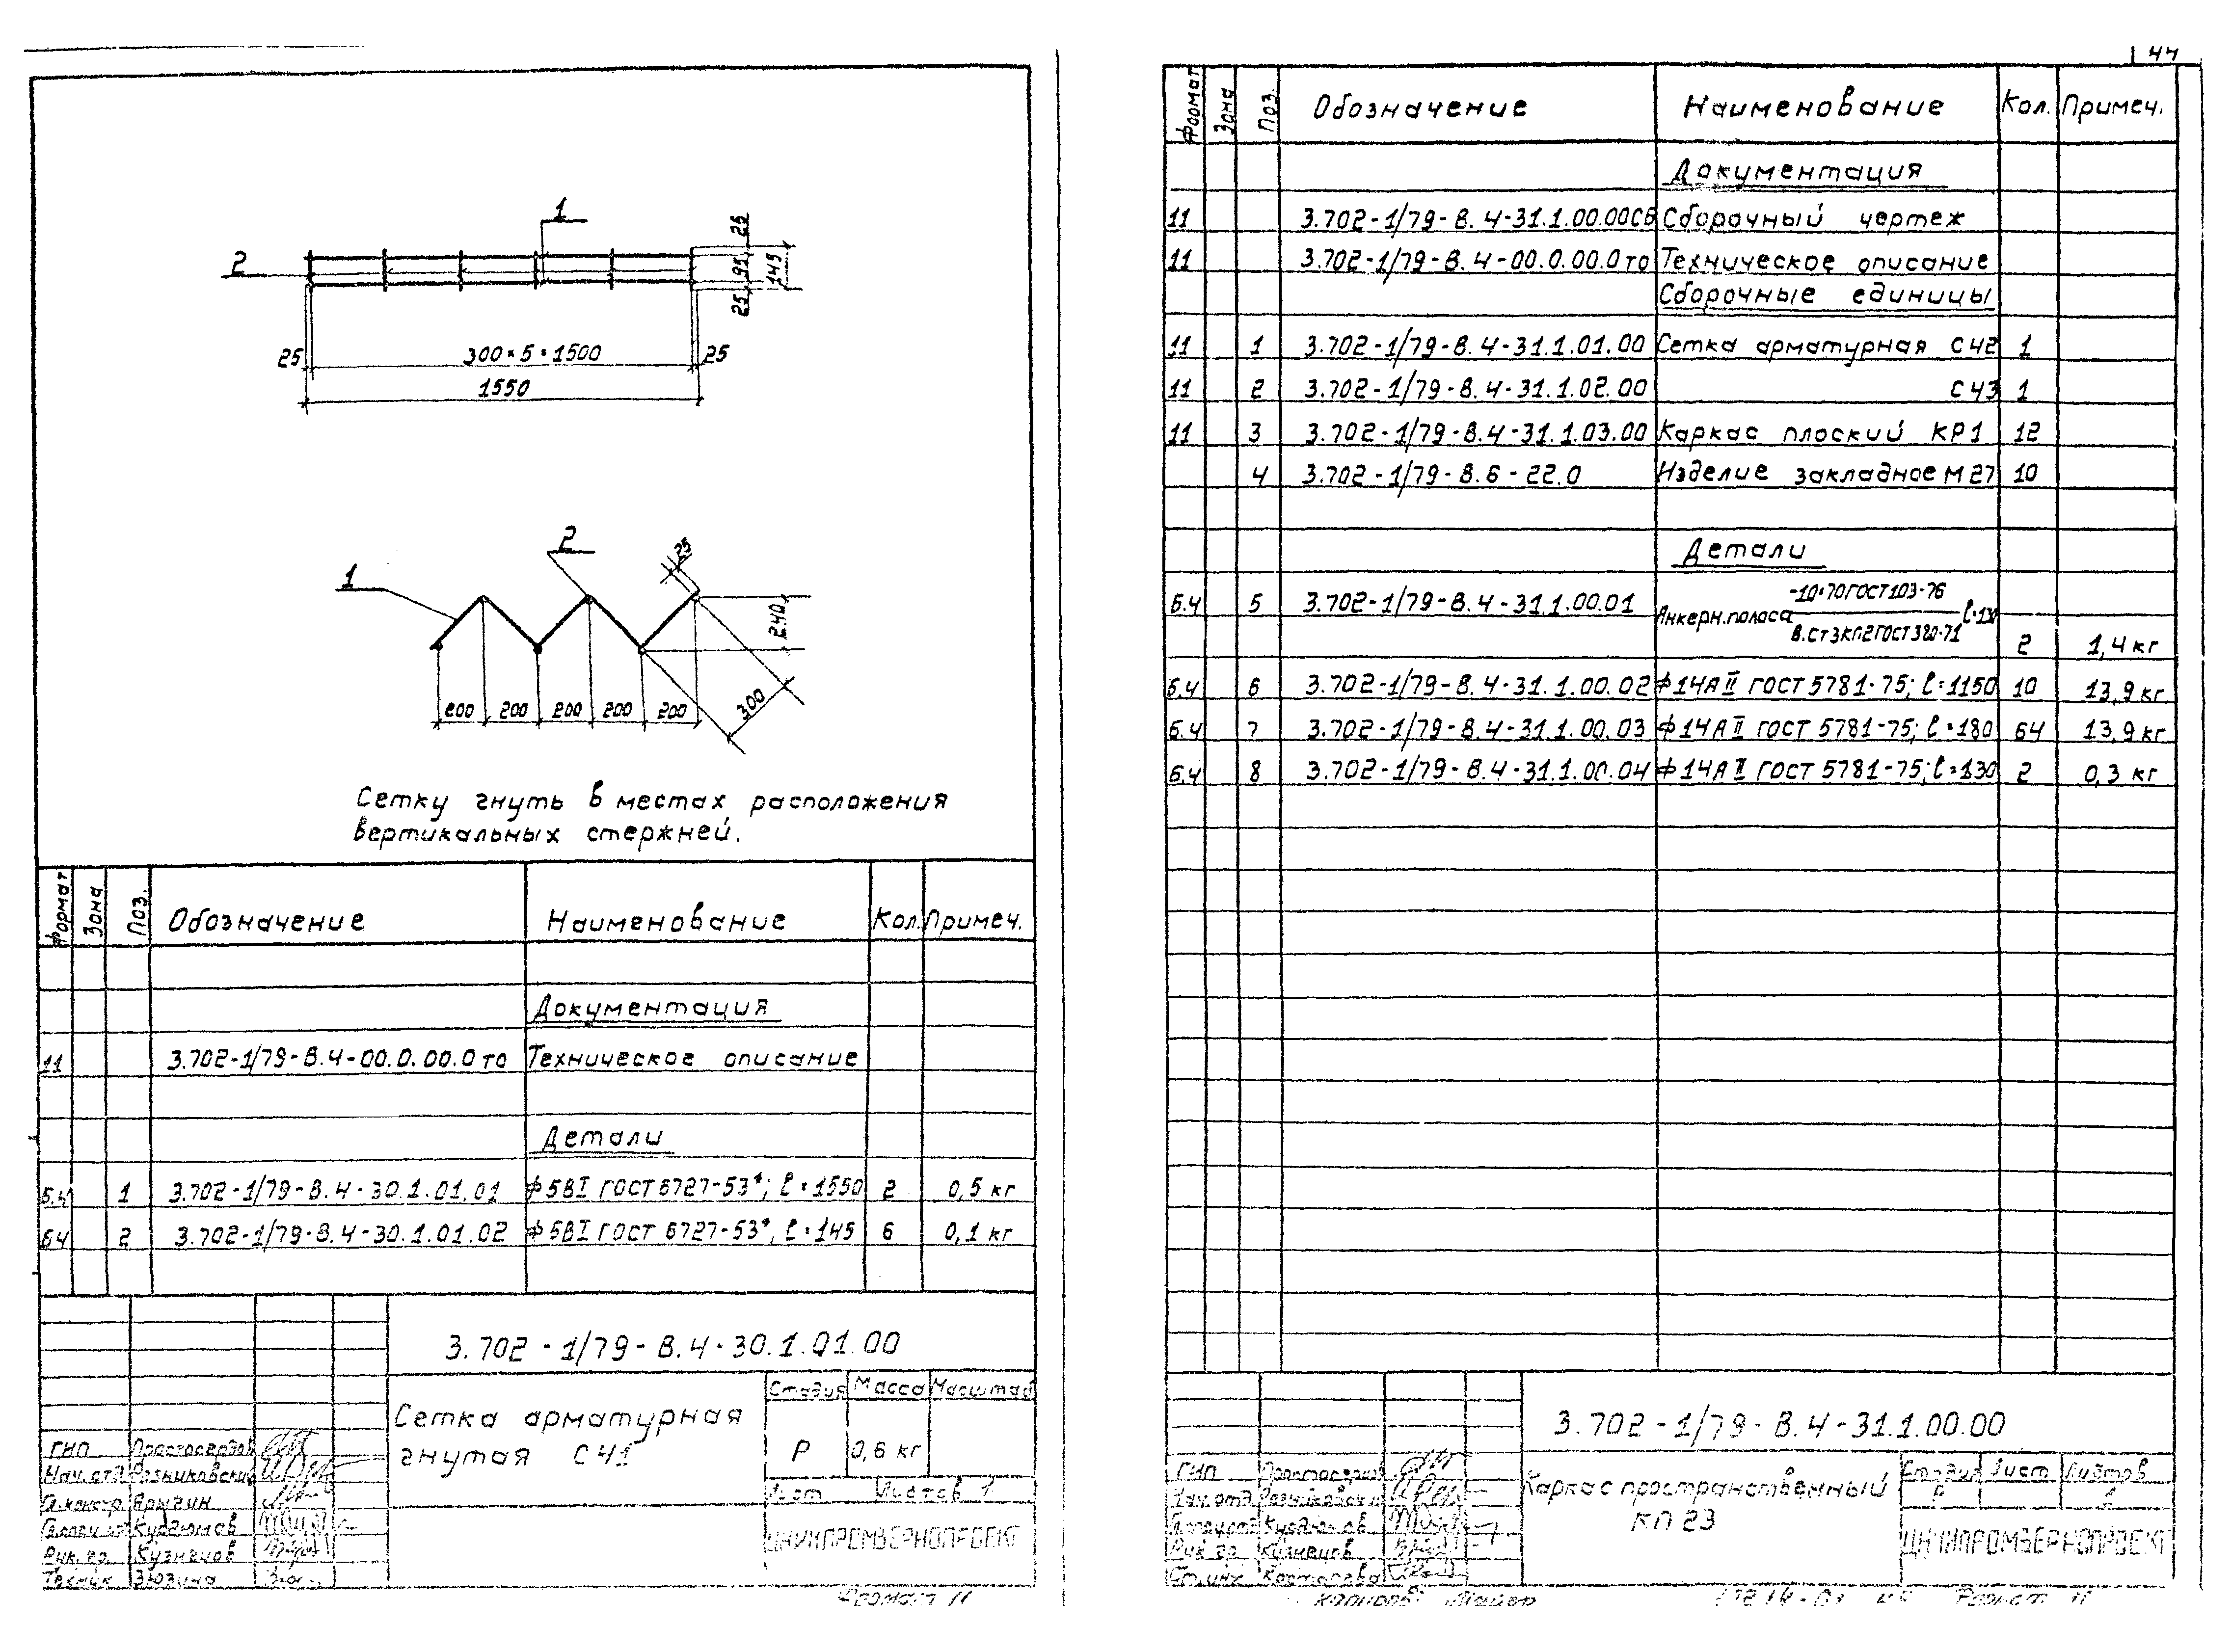 1
2
25
95
25
145
25
300×5=1500
25
1550
2
1
25
240
200 200 200 200 200
300
Сетку гнуть в местах расположения
вертикальных стержней.
Формат Зона Поз. Обозначение Наименование Кол. Примеч.
Документация
11 3.702-1/79-В.4-00.0.00.0то Техническое описание
Детали
Б.ч 1 3.702-1/79-В.4-30.1.01.01 ф5ВI ГОСТ 6727-53*; ℓ=1550 2 0,5 кг
Бч 2 3.702-1/79-В.4-30.1.01.02 ф5ВI ГОСТ 6727-53*, ℓ=145 6 0,1 кг
3.702-1/79-В.4-30.1.01.00
Сетка арматурная
гнутая С41
Стадия Масса Масштаб
Р 0,6 кг
Лист Листов 1
ЦНИИПРОМЗЕРНОПРОЕКТ
ГИП Простосердов
Нач.отд Розниковский
Гл.констр Ярыгин
Курдюмов
Рук. гр. Кузнецов
Техник Зюзина
Формат 11
44
Формат Зона Поз. Обозначение Наименование Кол. Примеч.
Документация
11 3.702-1/79-В.4-31.1.00.00СБ Сборочный чертеж
11 3.702-1/79-В.4-00.0.00.0то Техническое описание
Сборочные единицы
11 1 3.702-1/79-В.4-31.1.01.00 Сетка арматурная С42 1
11 2 3.702-1/79-В.4-31.1.02.00 С43 1
11 3 3.702-1/79-В.4-31.1.03.00 Каркас плоский КР1 12
4 3.702-1/79-В.6-22.0 Изделие закладное М27 10
Детали
Б.ч 5 3.702-1/79-В.4-31.1.00.01 Анкерн.полоса -10×70 ГОСТ 103-76 / В.Ст3кп2 ГОСТ 380-71 ℓ=130 2 1,4 кг
Б.ч 6 3.702-1/79-В.4-31.1.00.02 ф14АII ГОСТ 5781-75; ℓ=1150 10 13,9 кг
Б.ч 7 3.702-1/79-В.4-31.1.00.03 ф14АII ГОСТ 5781-75; ℓ=180 64 13,9 кг
Б.ч 8 3.702-1/79-В.4-31.1.00.04 ф14АII ГОСТ 5781-75; ℓ=130 2 0,3 кг
3.702-1/79-В.4-31.1.00.00
Каркас пространственный
КП 23
Стадия Лист Листов
Р 1
ЦНИИПРОМЗЕРНОПРОЕКТ
ГИП Простосердов
Нач.отд Розниковский
Курдюмов
Рук. гр. Кузнецов
Ст.инж Костюгова
Копировал Формат 11